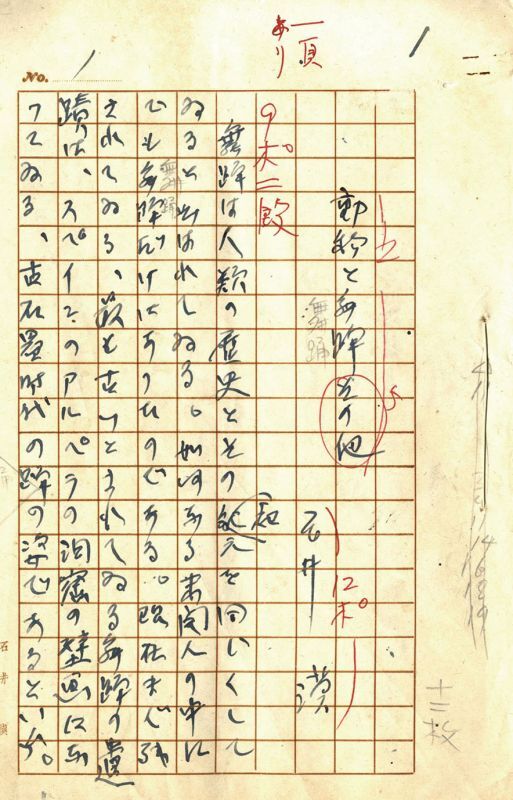 一頁
あり
1
No. 1
動物と舞踊その他
舞踊
石井 漠
12ポ
9ポ二段
舞踊は人類の歴史とその紀元を同じくして
紀
ゐると云はれてゐる。如何なる未開人の中に
舞踊
でも舞踊だけはあつたのである。現在まで残
されてゐる、最も古いとされてゐる舞踊の遺
蹟は、スペインのアルペラの洞窟の壁画にな
つてゐる、古石器時代の踊の姿であるといふ。
十三枚
石井漠